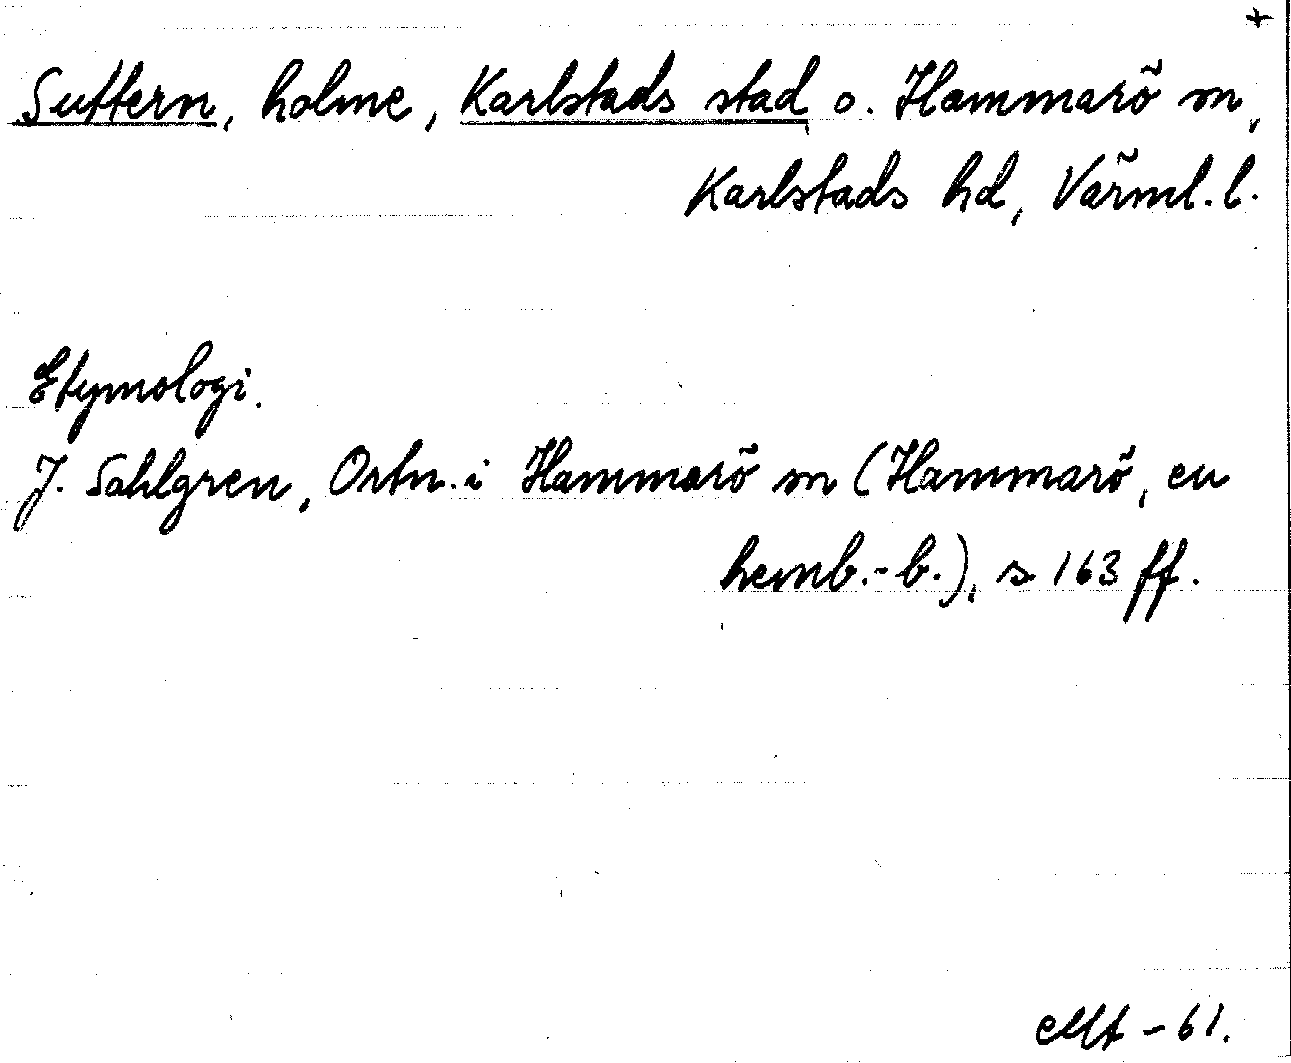 +
Suttern, holme, Karlstads stad o. Hammarö sn,
Karlstads hd, Värml. l.
Etymologi.
J. Sahlgren, Ortn. i Hammarö sn (Hammarö, en
hemb.-b.), s. 163 ff.
-61.